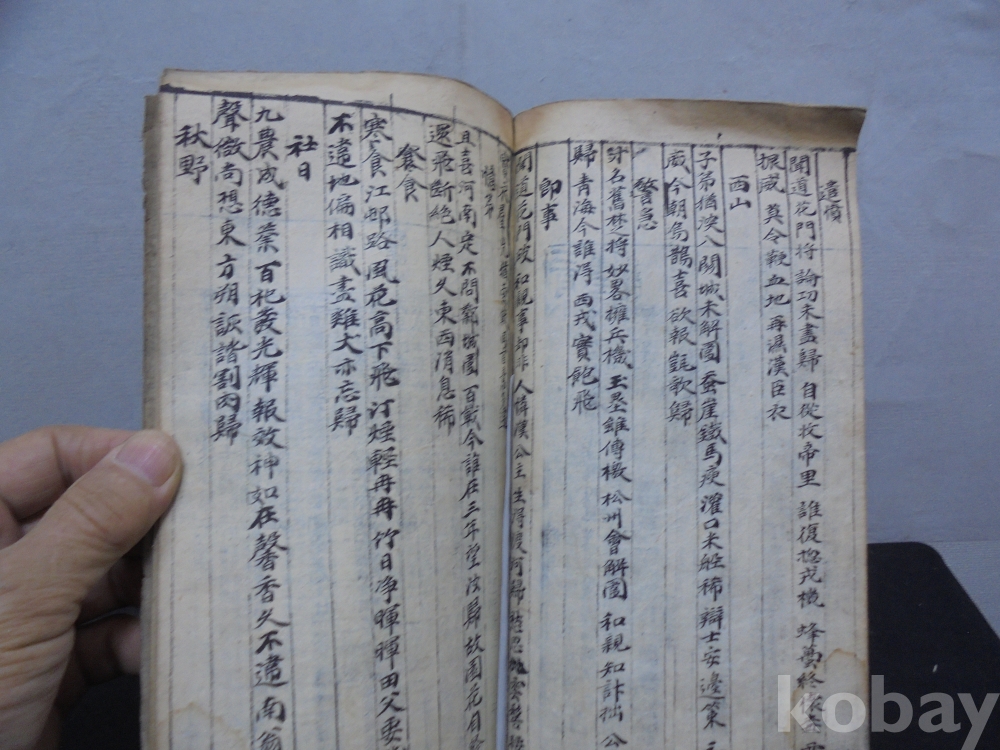 遣憤
聞道花門將 論功未盡歸 自從收帝里 誰復摠戎機 蜂蠆終懷
振威 莫令鞭血地 再濕漢臣衣
西山
子弟猶深入 關城未解圍 蚕崖鐵馬瘦 灌口米船稀 辯士安邊策
威 今朝烏鵲喜 欲報凱歌歸
警急
才名舊楚將 妙畧擁兵機 玉壘雖傳檄 松州會解圍 和親知計拙 公
歸 青海今誰得 西戎實飽飛
即事
聞道花門破 和親事却非 人憐漢公主 生得渡河歸
憶弟
且喜河南定 不問鄴城圍 百戰今誰在 三年望汝歸 故園花自
還飛 斷絕人煙久 東西消息稀
食
寒食江邨路 風花高下飛 汀煙輕冉冉 竹日净暉暉 田父要
不違 地偏相識盡 雞犬亦忘歸
社日
九農成德業 百祀發光輝 報效神如在 馨香久不違 南翁
聲微 尚想東方朔 詼諧割肉歸
秋野
kobay